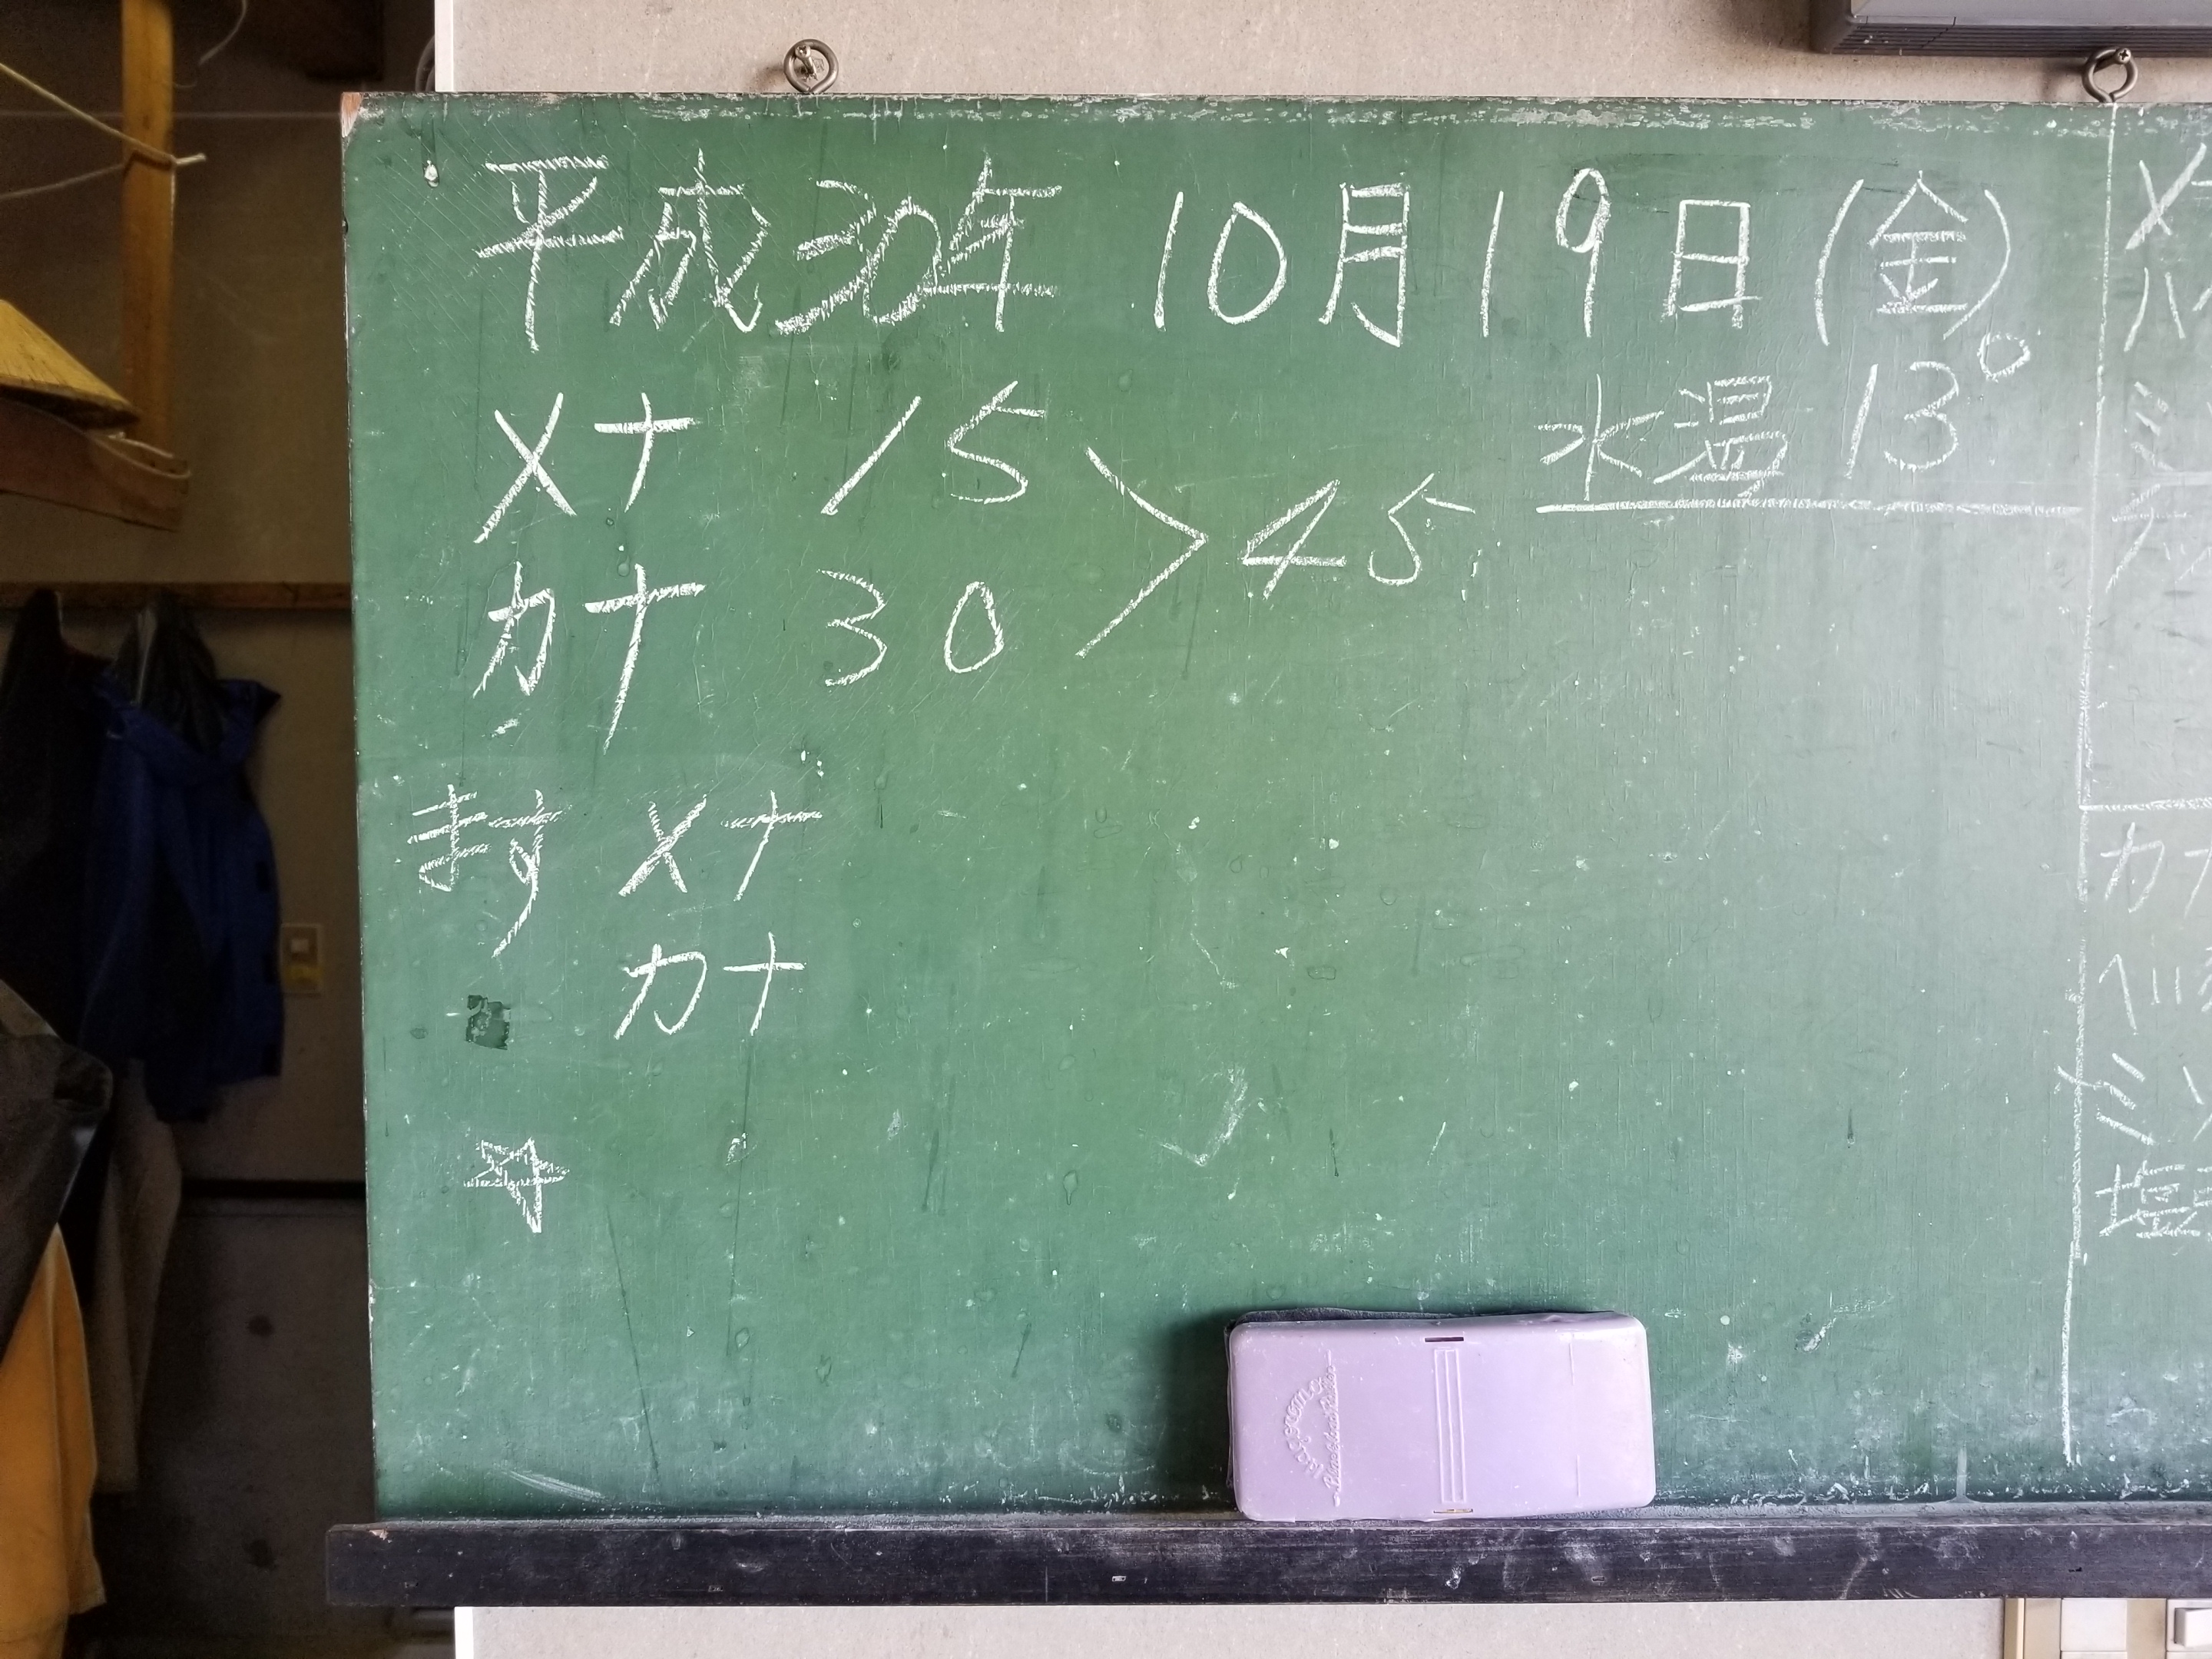 平成30年 10月19日(金)
水温 13°
メナ 15 > 45
カナ 30
ます メナ
カナ
☆
メナ
カナ
ミ
塩